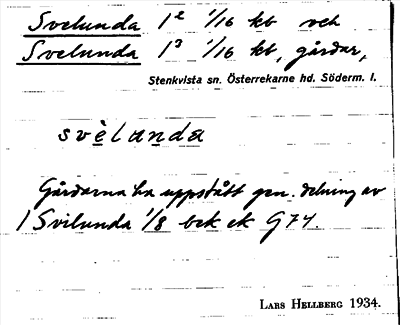 Svelunda 1² 1/16 kt och
Svelunda 1³ 1/16 kt, gårdar,
Stenkvista sn. Österrekarne hd. Söderm. l.
svèlu̲nda
Gårdarna ha uppstått gm. delning av
1 Svilunda 1/8 bek ek G74.
LARS HELLBERG 1934.